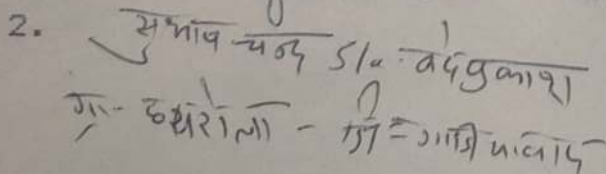 2. सुभाष चन्द S/o वेदप्रकाश
ग्रा- डबारसी - जि = गाजियाबाद